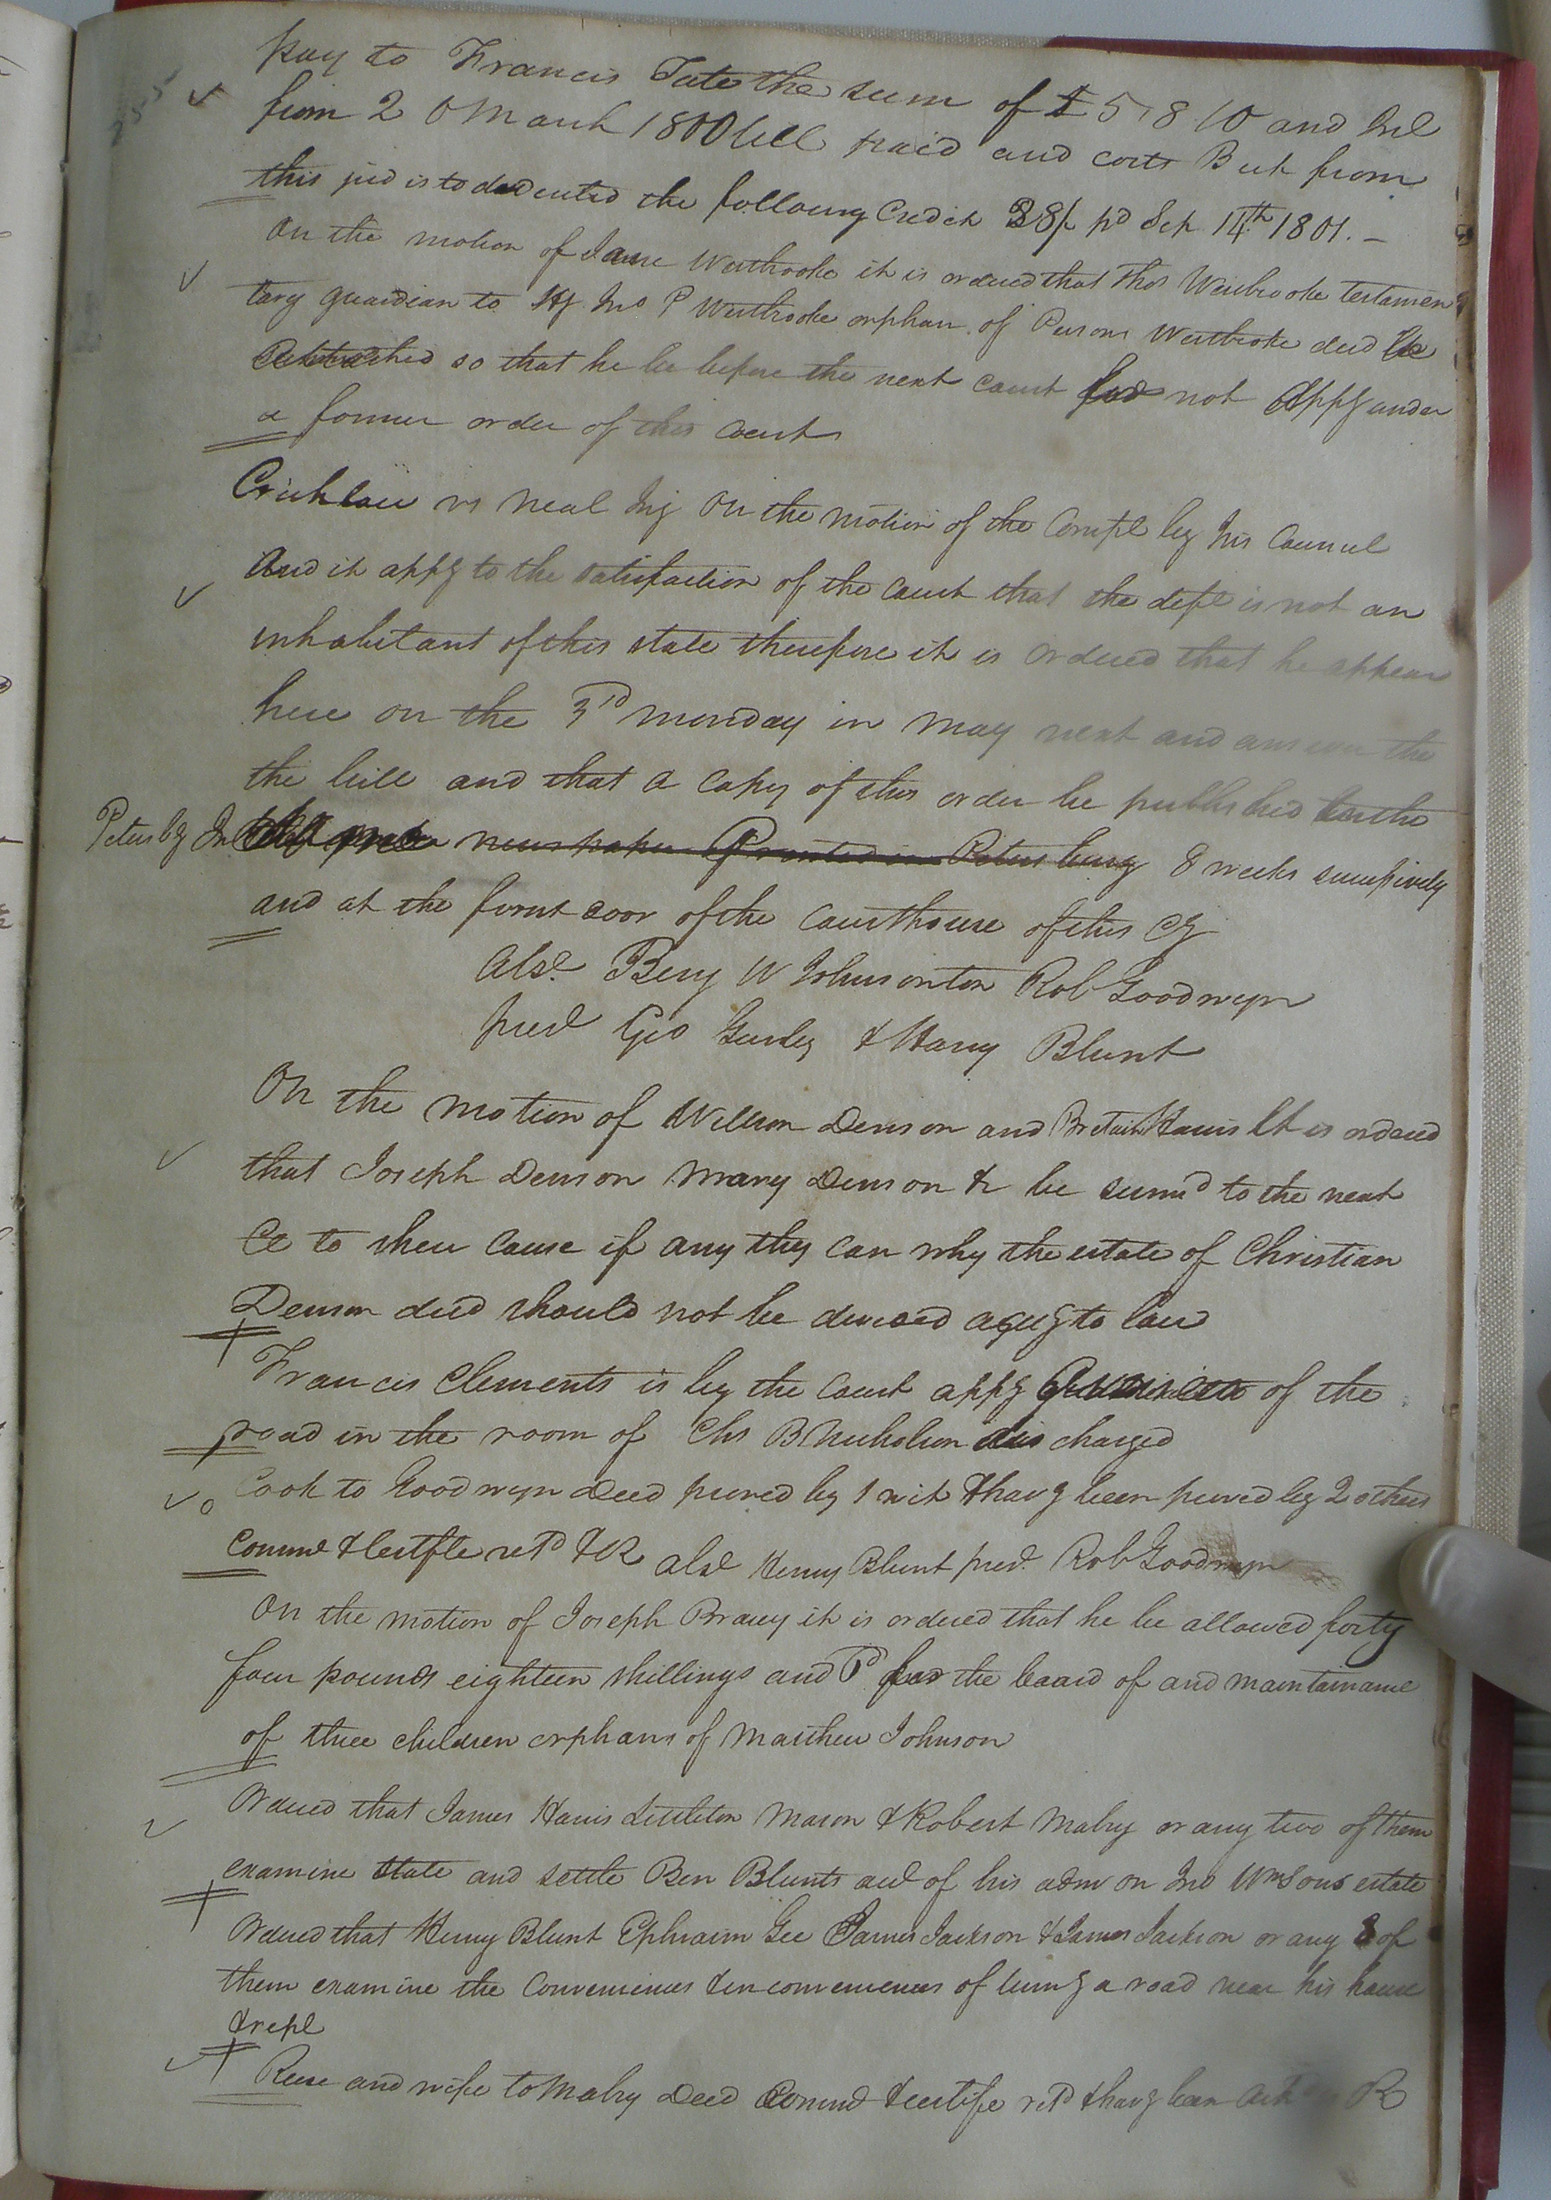 pay to Francis Tate the sum of £5.8.10 and Int
from 20 March 1800 till paid and costs But from
this jud is to deducted the following Credit 28/ pd Sep 14th 1801. –
On the motion of Westbrooke it is ordered that Thos Westbrooke testamen
tary guardian to Jno P Westbrooke orphan of Westbrooke decd be
Attached so that he be before the next Court for not Appg under
a former order of this Court
Crichlow vs Neal Inj On the motion of the Compt by his Councel
And it appg to the satisfaction of the Court that the deft is not an
inhabitant of this state therefore it is ordered that he appear
here on the 3rd monday in may next and answer the
the bill and that a Copy of this order be published in the
Petersbg In news paper Printed in Petersburg 8 weeks successively
and at the front door of the Courthouse of this Cy
abst Benj W Johnson Rob Goodwyn
prest Geo Gurley & Harry Blunt
On the motion of Willson Denson and Britain Harris It is ordered
that Joseph Denson Mary Denson & be summd to the next
Ct to shew cause if any they can why the estate of Christian
Denson decd should not be devised accg to law
Francis Clements is by the Court appg of the
road in the room of Chs B Nicholson discharged
Cook to Goodwyn Deed proved by 1 wit & havg been proved by 2 others
Commn & Certfte retd & R abst Henry Blunt prest Rob Goodwyn
On the motion of Joseph it is ordered that he be allowed forty
four pounds eighteen shillings and for the board of and maintainance
of three children orphans of Matthew Johnson
Ordered that James Harris Littleton Mason & Robert Mabry or any two of them
examine state and settle Ben Blunts acct of his adm on Jno Wmsons estate
Ordered that Henry Blunt Ephraim Gee James Jackson & James Jackson or any 3 of
them examine the Conveniences & inconveniences of turng a road near his house
& rept
Reese and wife to Mabry Deed Commn & certife retd & havg been R